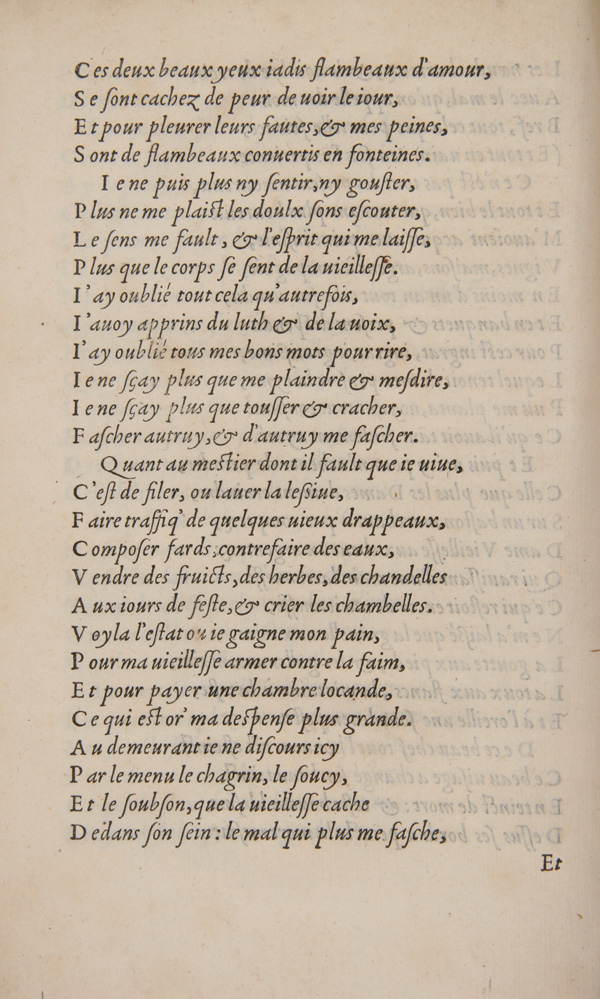 Ces deux beaux yeux iadis flambeaux d'amour,
Se ſont cachez de peur de uoir le iour,
Et pour pleurer leurs fautes, & mes peines,
Sont de flambeaux conuertis en fonteines.
Ie ne puis plus ny ſentir, ny gouſter,
Plus ne me plaiſt les doulx ſons eſcouter,
Le ſens me fault, & l'eſprit qui me laiſſe,
Plus que le corps ſe ſent de la uieilleſſe.
I'ay oublié tout cela qu'autrefois,
I'auoy apprins du luth & de la uoix,
I'ay oublié tous mes bons mots pour rire,
Ie ne ſçay plus que me plaindre & meſdire,
Ie ne ſçay plus que touſſer & cracher,
Faſcher autruy, & d'autruy me faſcher.
Quant au meſtier dont il fault que ie uiue,
C'eſt de filer, ou lauer la leſsiue,
Faire traffiq' de quelques uieux drappeaux,
Compoſer fards, contrefaire des eaux,
Vendre des fruicts, des herbes, des chandelles
Aux iours de feſte, & crier les chambelles.
Voyla l'eſtat ou ie gaigne mon pain,
Pour ma uieilleſſe armer contre la faim,
Et pour payer une chambre locande,
Ce qui eſt or' ma deſpenſe plus grande.
Au demeurant ie ne diſcours icy
Par le menu le chagrin, le ſoucy,
Et le ſoubſon, que la uieilleſſe cache
Dedans ſon ſein : le mal qui plus me faſche,
Et